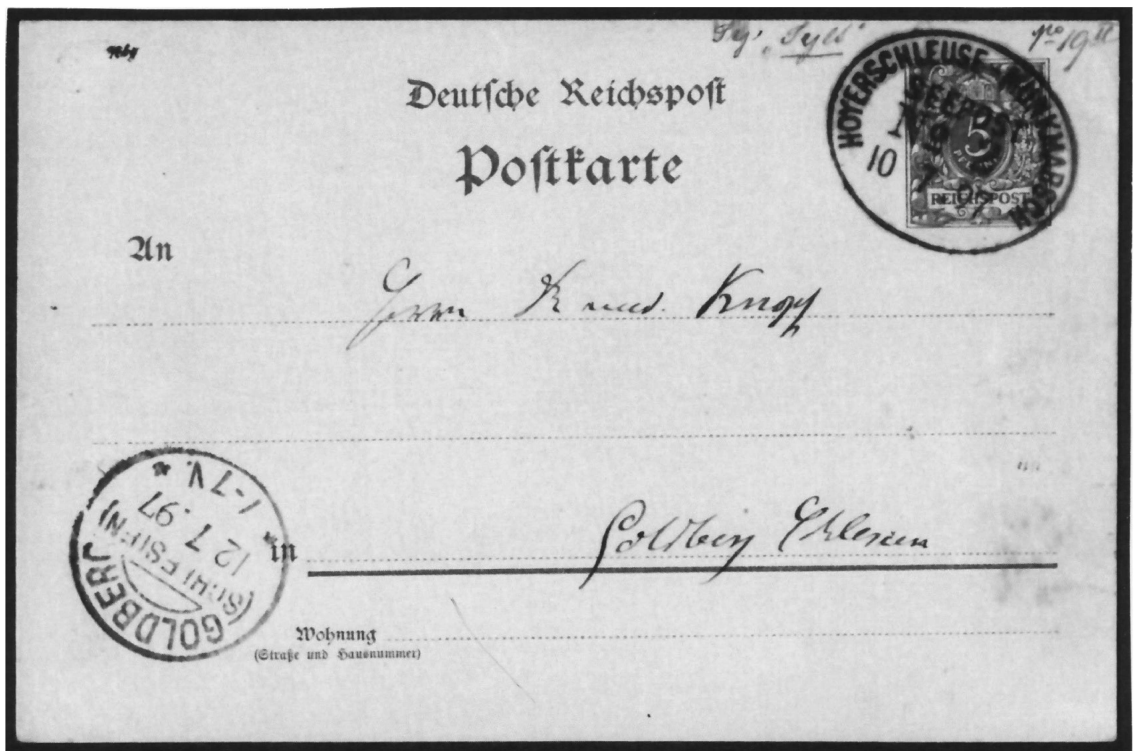 "Sylt"
Deutsche Reichspost
Postkarte
HOYERSCHLEUSE - MUNKMARSCH
SEEPOST
10 7 97
5
PFENNIG
REICHSPOST
An
Herrn med. Knopf
in Goldberg Schlesien
GOLDBERG
(SCHLESIEN)
12 7 .97
* 1-7 N. *
Wohnung
(Straße und Hausnummer)